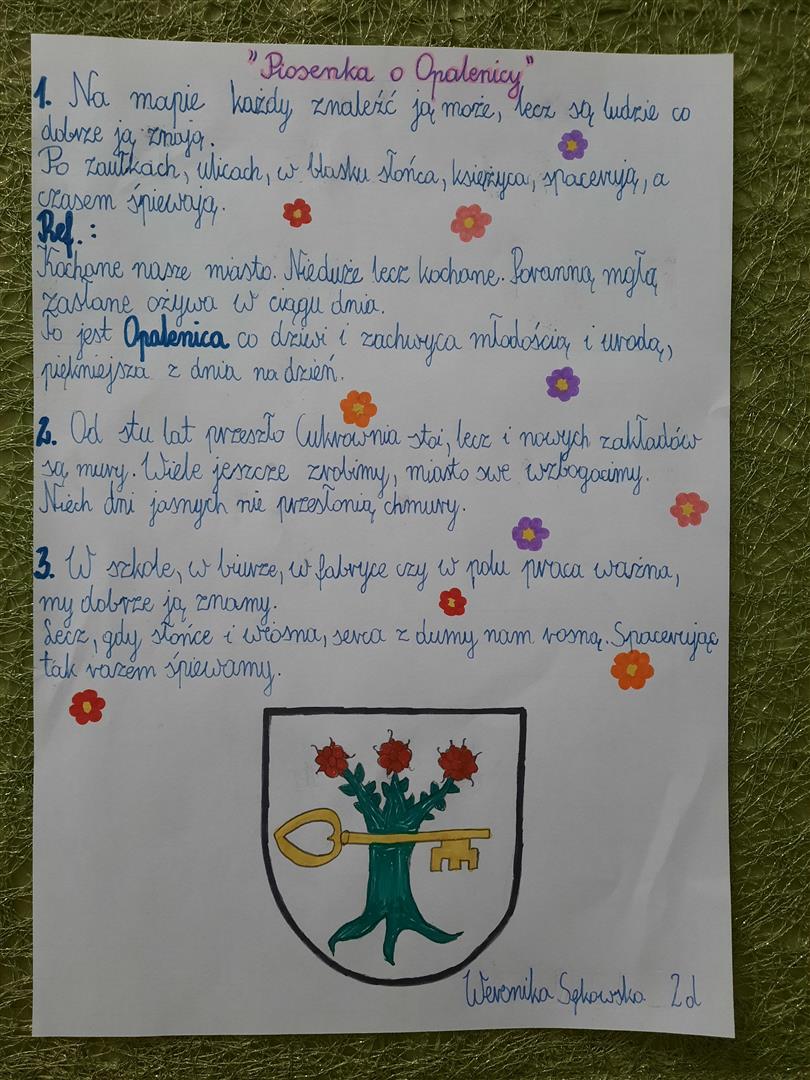 "Piosenka o Opalenicy"
1. Na mapie każdy znaleźć ją może, lecz są ludzie co
dobrze ją znają.
Po zaułkach, ulicach, w blasku słońca, księżyca, spacerują, a
czasem śpiewają.
Ref.:
Kochane nasze miasto. Nieduże lecz kochane. Poranną mgłą
zasłane ożywa w ciągu dnia.
To jest Opalenica co dziwi i zachwyca młodością i urodą,
piękniejsza z dnia na dzień.
2. Od stu lat przeszło Cukrownia stoi, lecz i nowych zakładów
są mury. Wiele jeszcze zrobimy, miasto swe wzbogacimy.
Niech dni jasnych nie przesłonią chmury.
3. W szkole, w biurze, w fabryce czy w polu praca ważna,
my dobrze ją znamy.
Lecz, gdy słońce i wiosna, serca z dumy nam rosną. Spacerując
tak razem śpiewamy.
Weronika Sękowska 2d